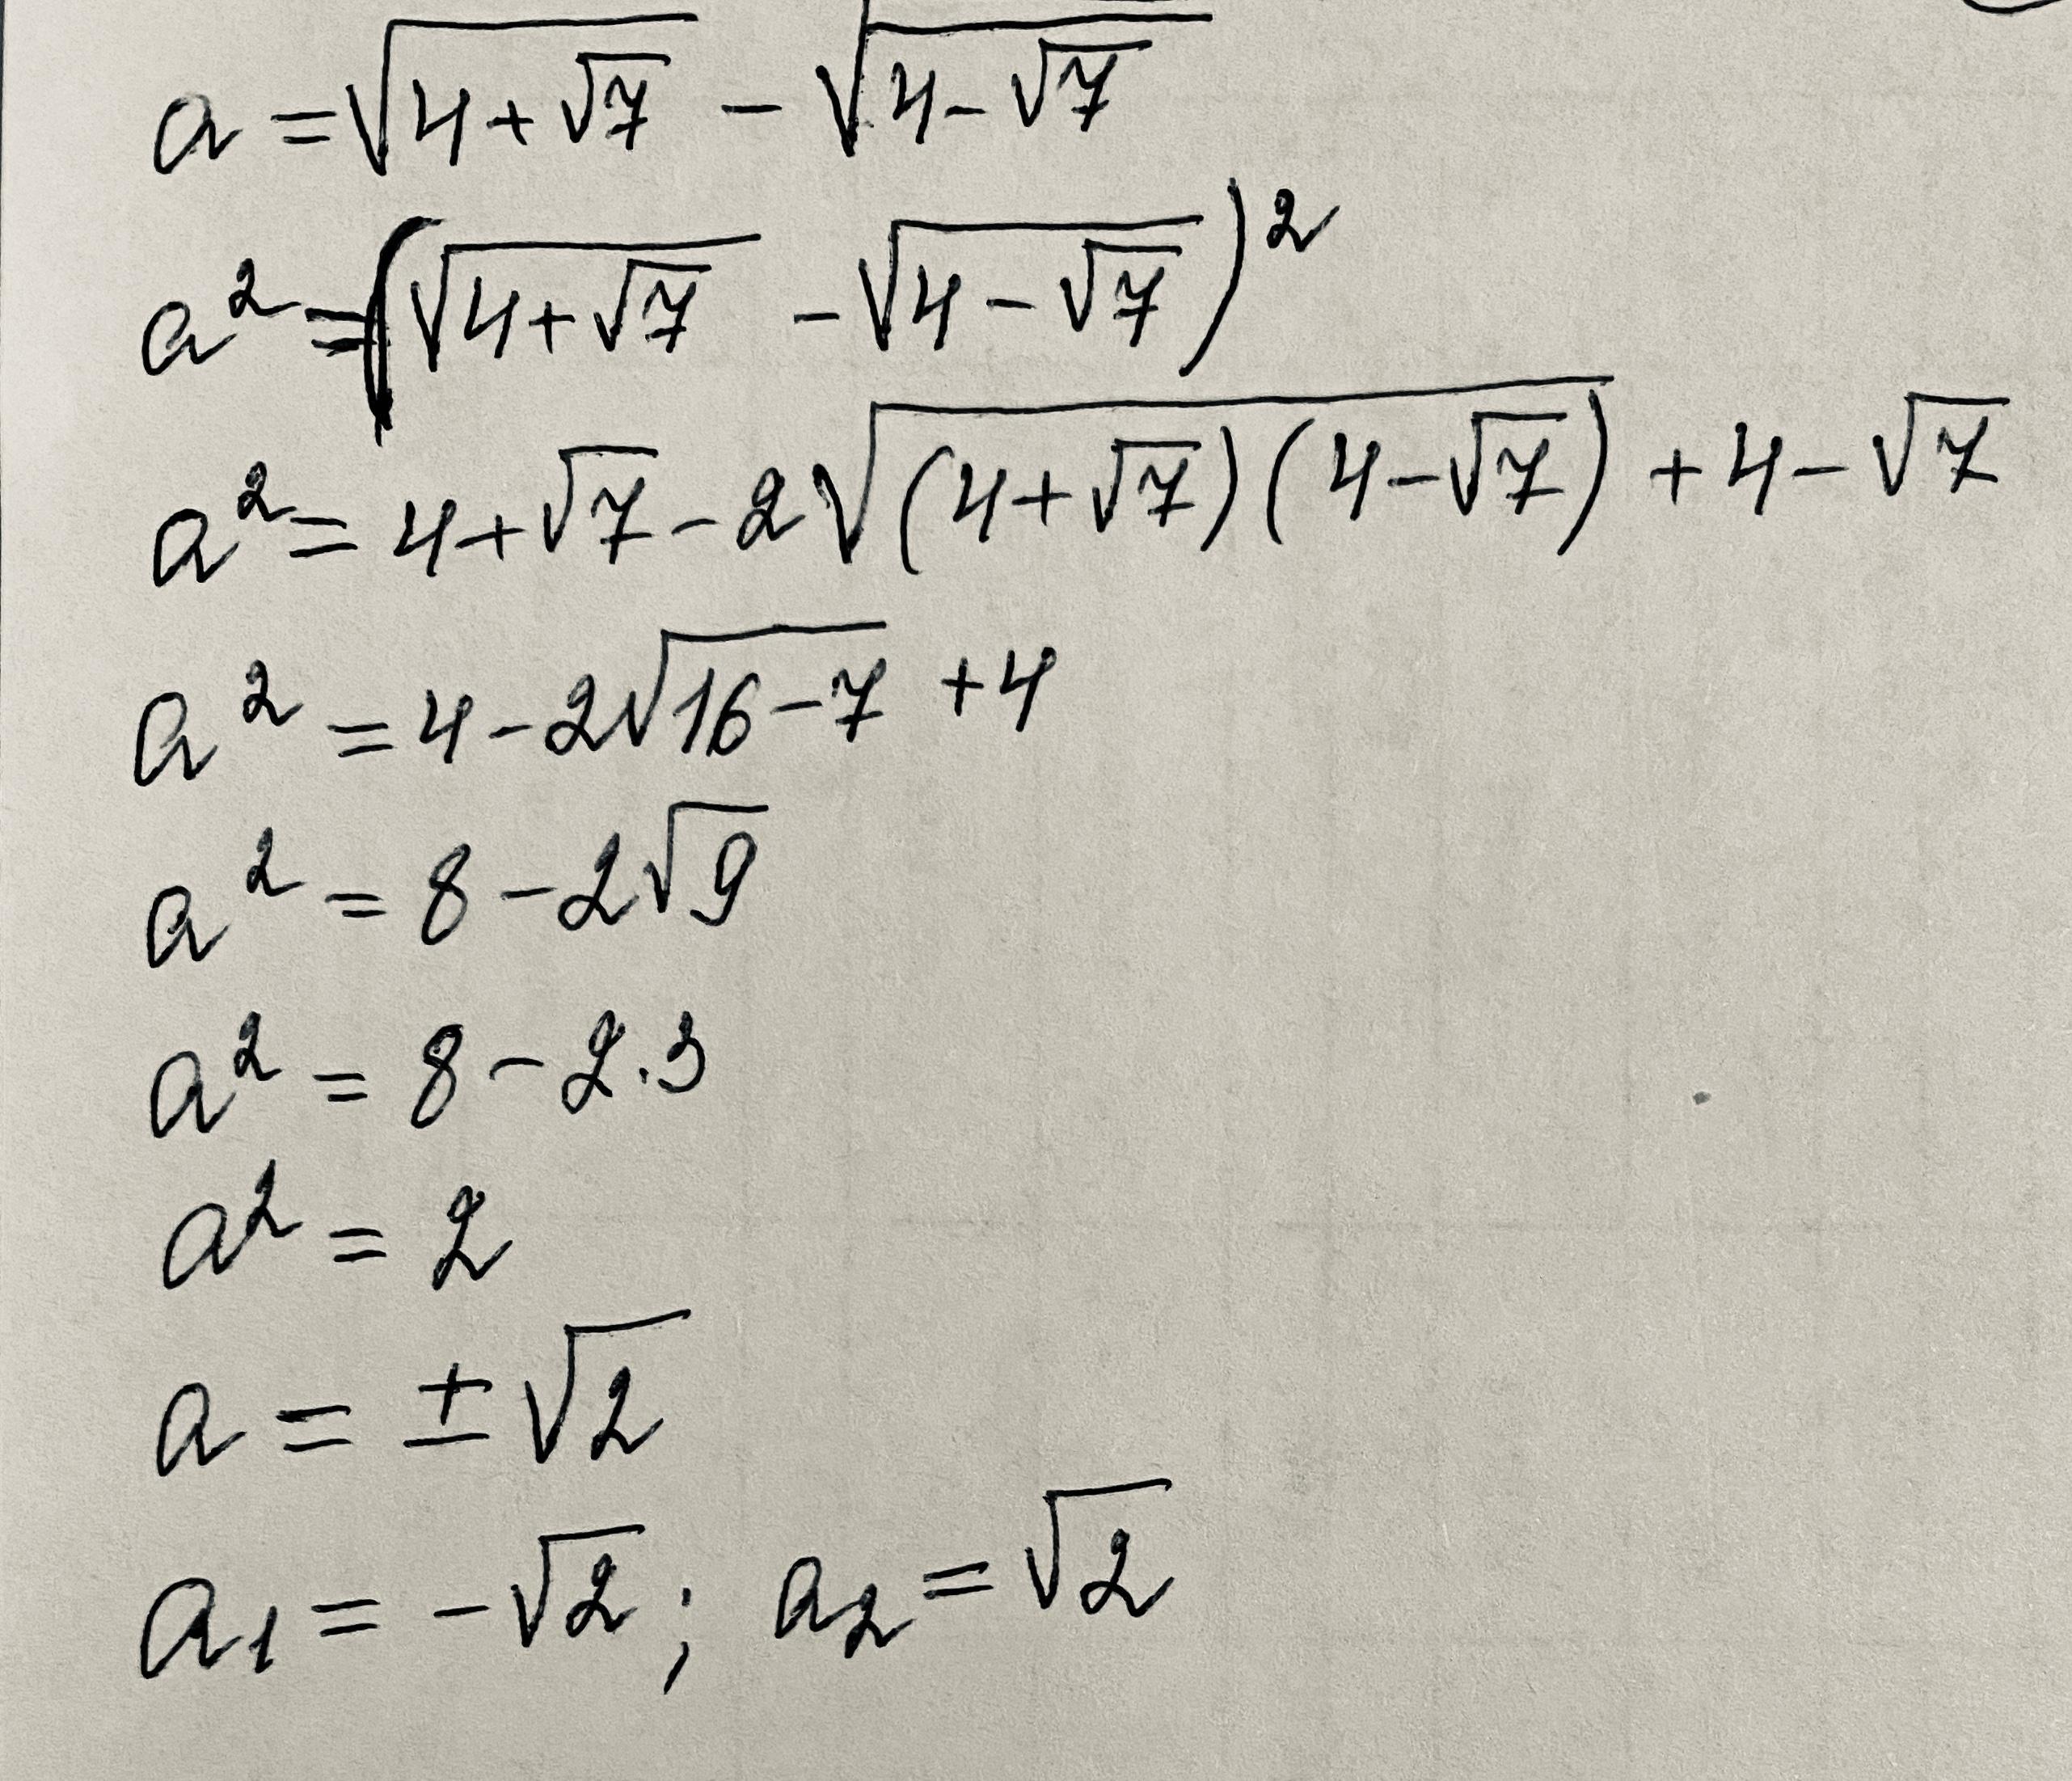 a = √(4+√7) - √(4-√7)
a² = (√(4+√7) - √(4-√7))²
a² = 4+√7 - 2√((4+√7)(4-√7)) + 4 - √7
a² = 4 - 2√(16-7) + 4
a² = 8 - 2√9
a² = 8 - 2·3
a² = 2
a = ±√2
a₁ = -√2 ; a₂ = √2